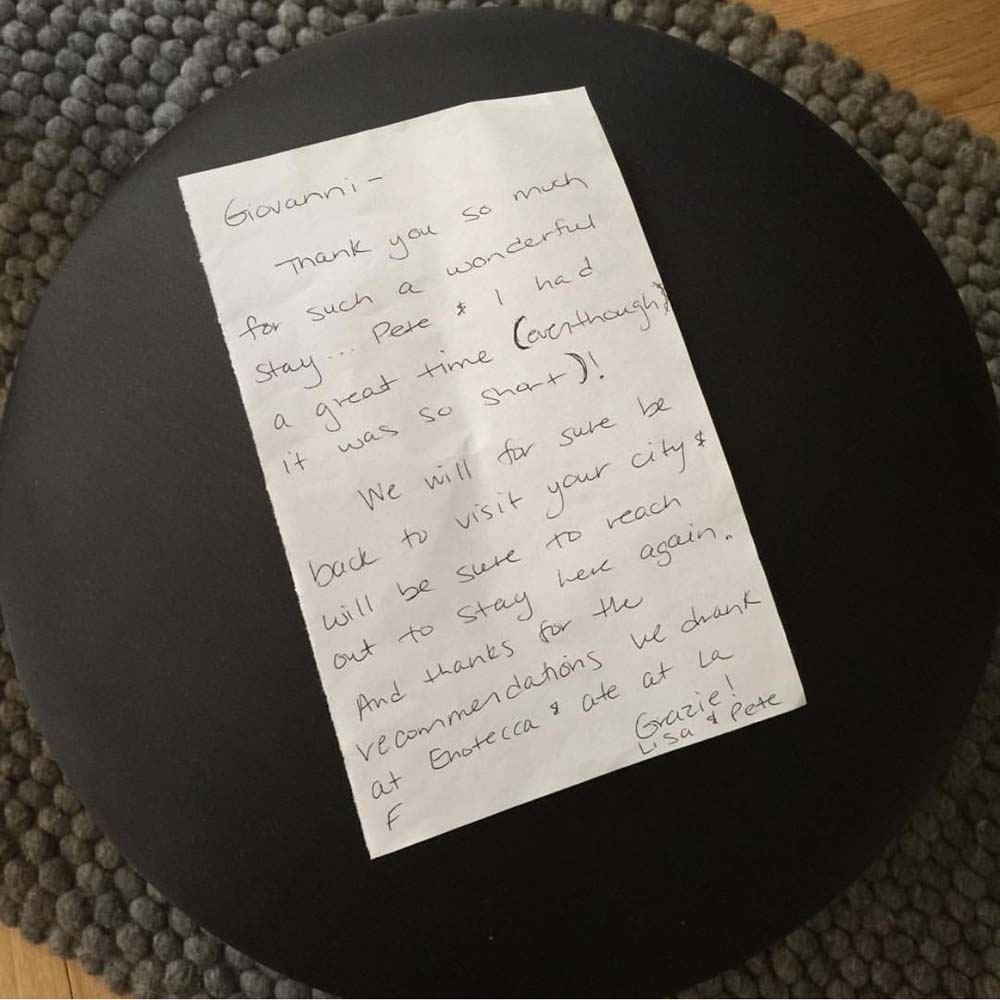 Giovanni -
Thank you so much
for such a wonderful
stay... Pete & I had
a great time (eventhough)
it was so short)!
We will for sure be
back to visit your city &
will be sure to reach
out to stay here again.
And thanks for the
recommendations we drank
at Enotecca & ate at La
F
Grazie!
Lisa & Pete